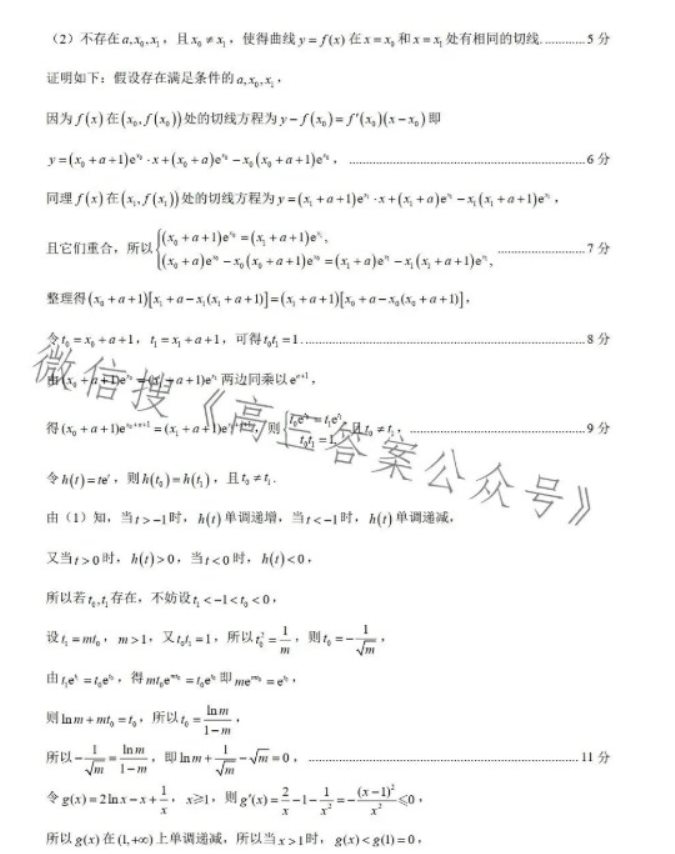 （2）不存在a,x₀,x₁，且x₀≠x₁，使得曲线y=f(x)在x=x₀和x=x₁处有相同的切线.............5分
证明如下：假设存在满足条件的a,x₀,x₁，
因为f(x)在(x₀,f(x₀))处的切线方程为y−f(x₀)=f′(x₀)(x−x₀)即
y=(x₀+a+1)e^{x₀}·x+(x₀+a)e^{x₀}−x₀(x₀+a+1)e^{x₀}，.............6分
同理f(x)在(x₁,f(x₁))处的切线方程为y=(x₁+a+1)e^{x₁}·x+(x₁+a)e^{x₁}−x₁(x₁+a+1)e^{x₁}，
且它们重合，所以{(x₀+a+1)e^{x₀}=(x₁+a+1)e^{x₁}, (x₀+a)e^{x₀}−x₀(x₀+a+1)e^{x₀}=(x₁+a)e^{x₁}−x₁(x₁+a+1)e^{x₁}, .............7分
整理得(x₀+a+1)[x₁+a−x₁(x₁+a+1)]=(x₁+a+1)[x₀+a−x₀(x₀+a+1)]，
令t₀=x₀+a+1，t₁=x₁+a+1，可得t₀t₁=1.............8分
由(x₀+a+1)e^{x₀}=(x₁+a+1)e^{x₁}两边同乘以e^{a+1}，
得(x₀+a+1)e^{x₀+a+1}=(x₁+a+1)e^{x₁+a+1}，则{t₀e^{t₀}=t₁e^{t₁}, t₀t₁=1, 且t₀≠t₁，.............9分
令h(t)=te^{t}，则h(t₀)=h(t₁)，且t₀≠t₁.
由（1）知，当t>−1时，h(t)单调递增，当t<−1时，h(t)单调递减，
又当t>0时，h(t)>0，当t<0时，h(t)<0，
所以若t₀,t₁存在，不妨设t₁<−1<t₀<0，
设t₁=mt₀，m>1，又t₀t₁=1，所以t₀²=1/m，则t₀=−1/√m，
由t₁e^{t₁}=t₀e^{t₀}，得mt₀e^{mt₀}=t₀e^{t₀}即me^{mt₀}=e^{t₀}，
则ln m+mt₀=t₀，所以t₀=ln m/(1−m)，
所以−1/√m=ln m/(1−m)，即ln m+1/√m−√m=0，.............11分
令g(x)=2ln x−x+1/x，x≥1，则g′(x)=2/x−1−1/x²=−(x−1)²/x²≤0，
所以g(x)在(1,+∞)上单调递减，所以当x>1时，g(x)<g(1)=0，
微信搜《高三答案公众号》